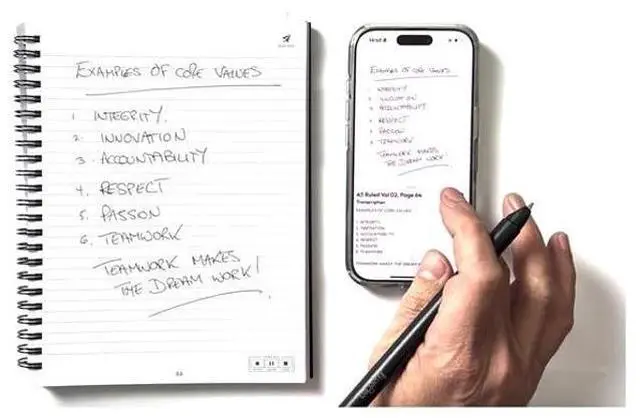 EXAMPLES OF CORE VALUES
1 INTEGRITY.
2. INNOVATION
3. ACCOUNTABILITY
4. RESPECT
5. PASSON
6. TEAMWORK
TEAMWORK MAKES
THE DREAM WORK!
EXAMPLES OF CORE VALUES
INTEGRITY
INNOVATION
ACCOUNTABILITY
RESPECT
PASSON
TEAMWORK
TEAMWORK MAKES
THE DREAM WORK!
A5 Ruled Vol 02, Page 66
Transcription
EXAMPLES OF CORE VALUES
1. INTEGRITY
2. INNOVATION
3. ACCOUNTABILITY
4. RESPECT
5. PASSION
6. TEAMWORK
TEAMWORK MAKES THE DREAM